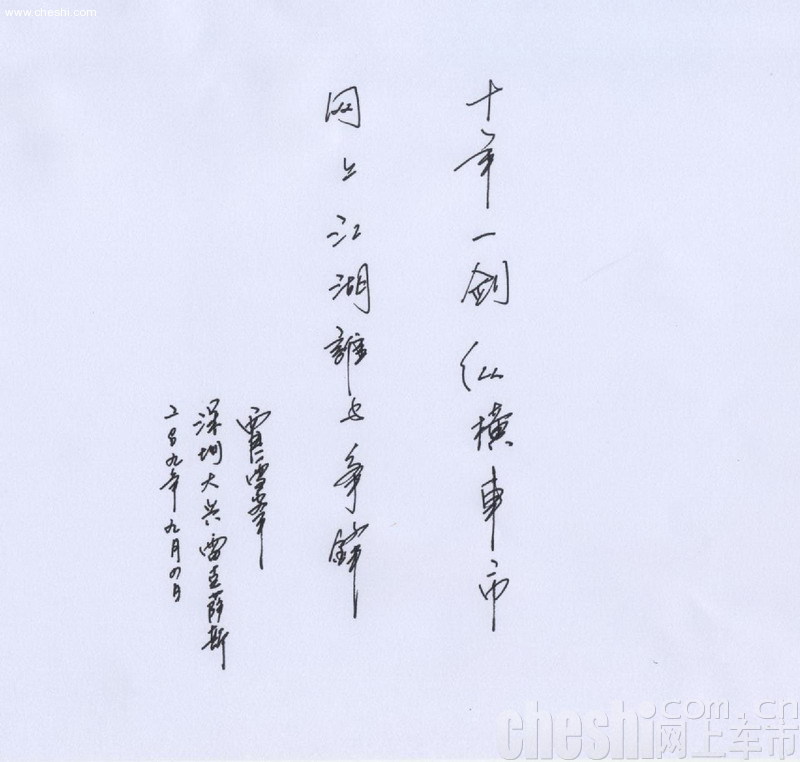 网上车市
www.cheshi.com
十年一剑 纵橫車市
网上江湖誰与争鋒
賈雪峯
深圳大兴雷克薩斯
二00九年九月四日
cheshi.com.cn
网上车市